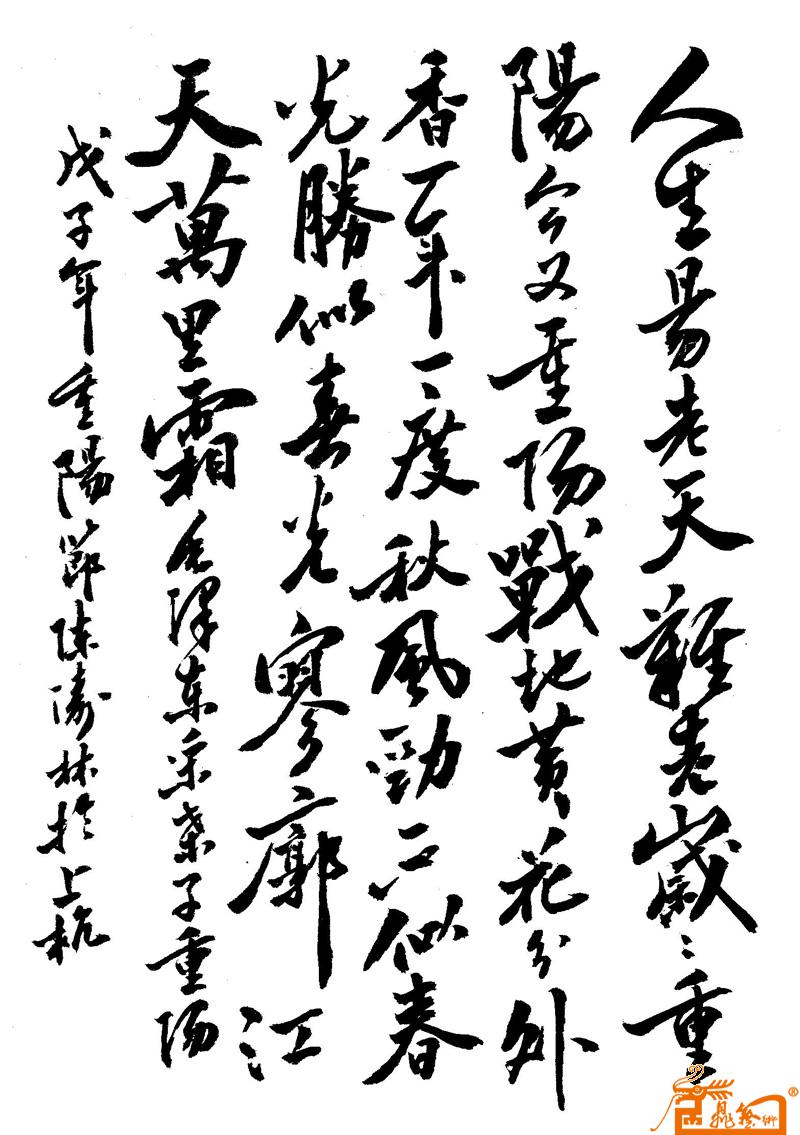 人生易老天難老歲々重
陽今又重陽戰地黄花分外
香一年一度秋風勁不似春
光勝似春光寥廓江
天萬里霜毛澤东采桑子重陽
戊子年重陽節陈濤林於上杭
鼎藝術